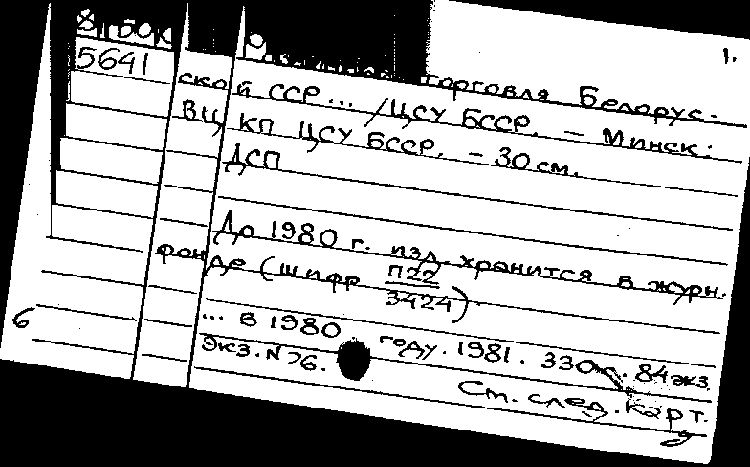 1.
5641
торговля Белорус-
ской ССР... /ЦСУ БССР. – Минск:
ВЦ КП ЦСУ БССР. – 30 см.
ДСП
До 1980 г. изд. хранится в журн.
фонде (шифр П22
3424).
... в 1980 году. 1981. 330 с. 84 экз.
6
Экз. N 76.
См. след. карт.